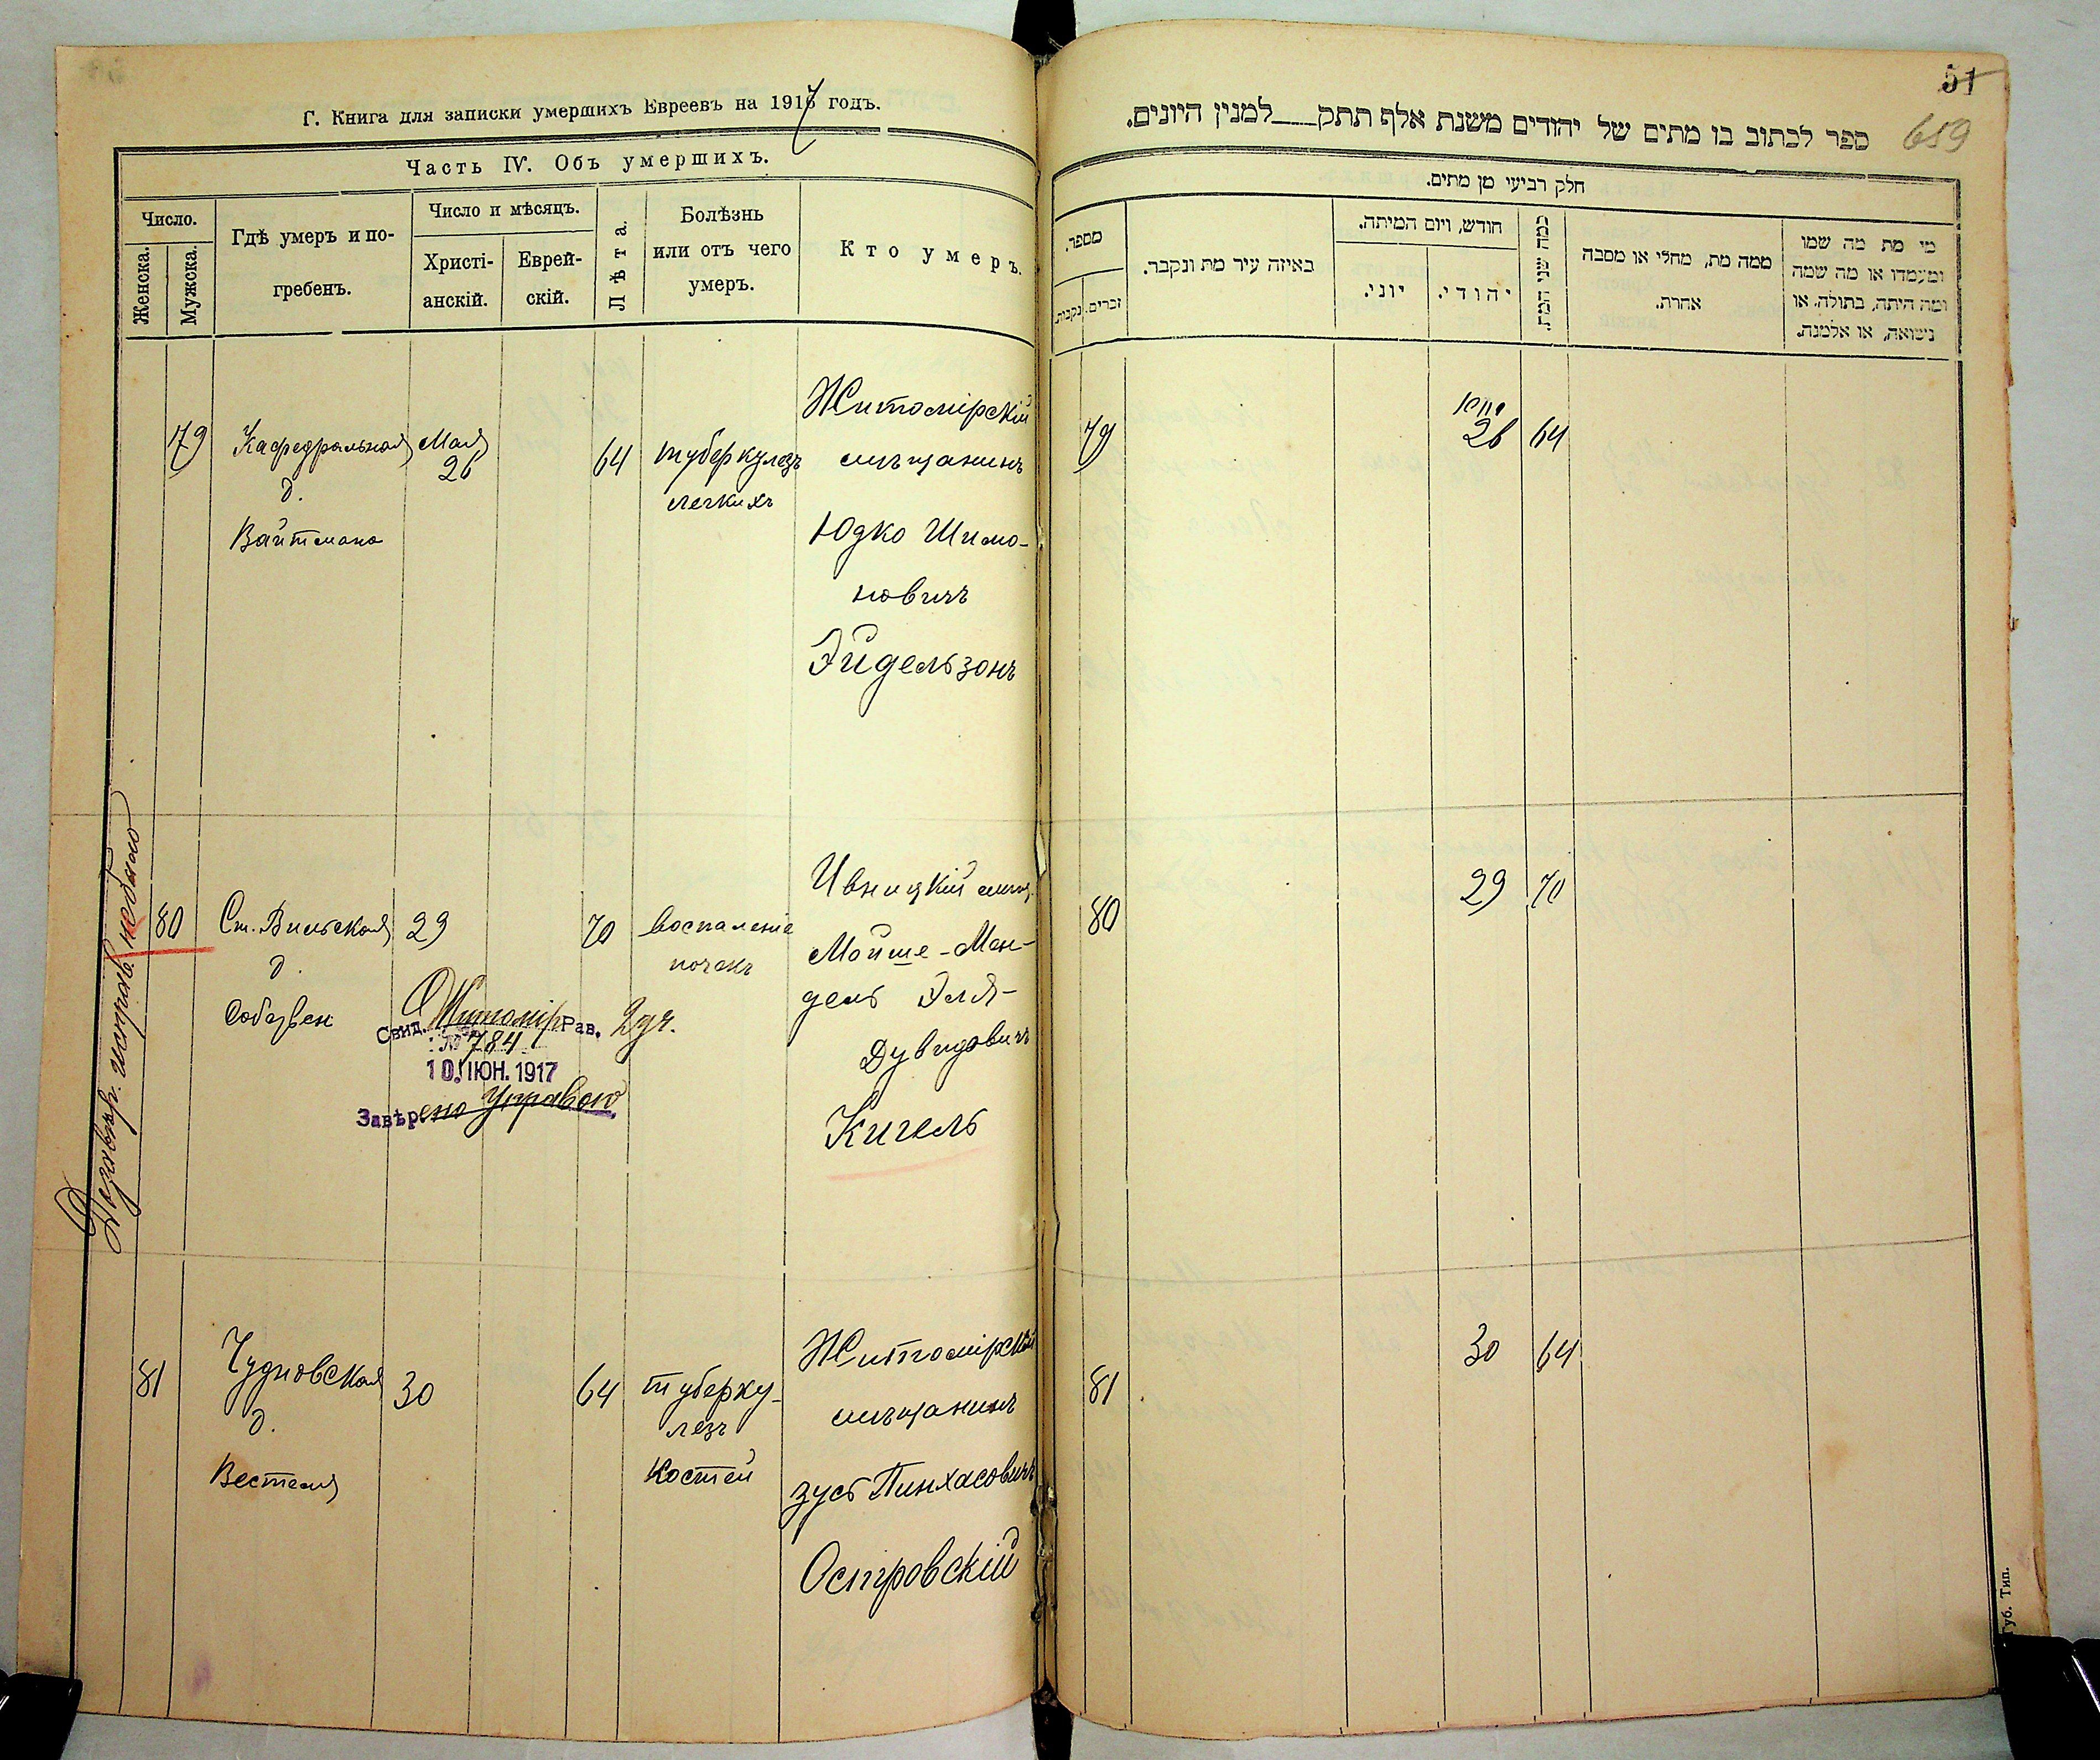 Г. Книга для записки умершихъ Евреевъ на 1917 годъ.
Часть IV. Объ умершихъ.
Число.
Женска.
Мужска.
Гдѣ умеръ и по-
гребенъ.
Число и мѣсяцъ.
Христі-
анскій.
Еврей-
скій.
Лѣта.
Болѣзнь
или отъ чего
умеръ.
Кто умеръ.
79
Кафедральная
д.
Вайтмана
Мая
26
64
туберкулезъ
легкихъ
Житомірскій
мѣщанинъ
Юдко Шимо-
новичъ
Эйдельзонъ
80
Ст. Вильская
д.
29
70
воспаленіе
почекъ
Ивницкій мѣщ.
Мойше-Мен-
дель Эля-
Дувидовичъ
Кигель
Свид. Житомір Рав. 2 дч.
№ 784
10 ІЮН. 1917
Завѣрено Управою
исправ. не было
81
Чудновская
д.
30
64
туберку-
лезъ
костей
Житомірскій
мѣщанинъ
Зусь Пинхасовичъ
Островскій
51
659
ספר לכתוב בו מתים של יהודים משנת אלף תתק___למנין היונים.
חלק רביעי מן מתים.
מספר.
זכרים.
נקבות.
באיזה עיר מת ונקבר.
חודש, ויום המיתה.
יוני.
יהודי.
כמה שני המת.
ממה מת, מחלי או מסבה
אחרת.
מי מת מה שמו
ומעמדו או מה שמה
ומה היתה, בתולה, או
נישואה, או אלמנה.
79
26
64
80
29
70
81
30
64
Губ. Тип.